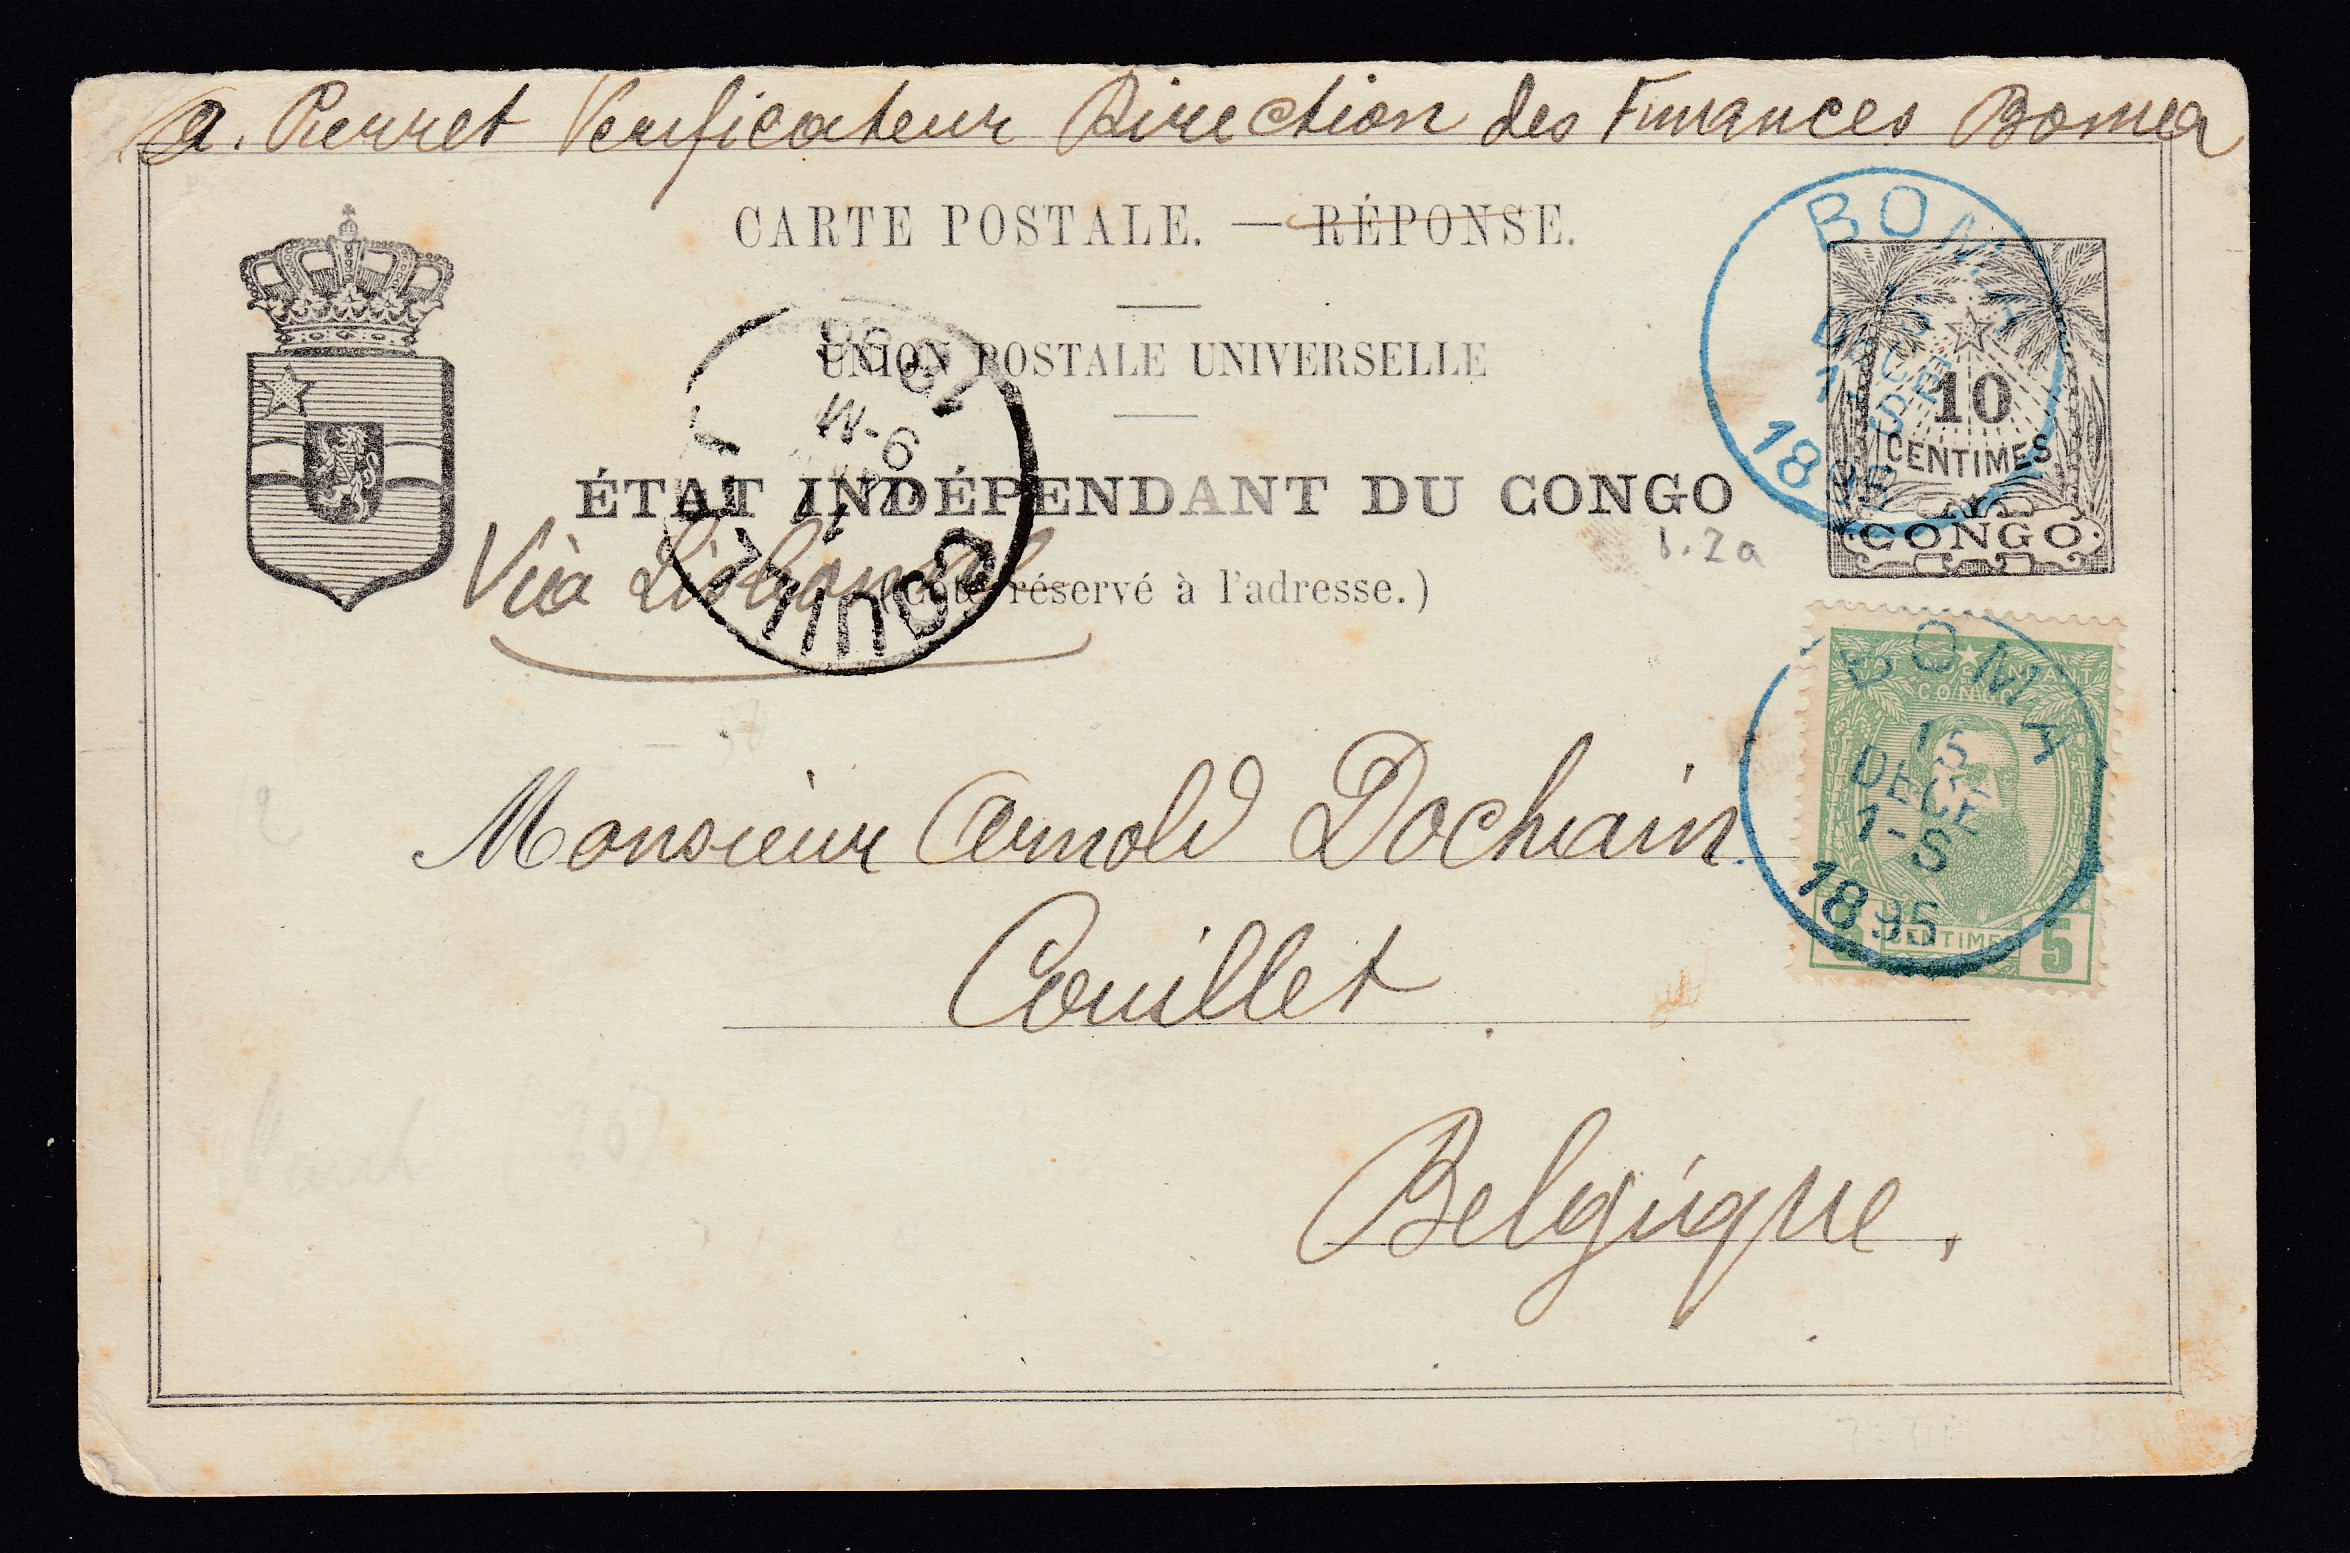 a. Pierret Verificateur Direction des Finances Boma
CARTE POSTALE. — RÉPONSE.
UNION POSTALE UNIVERSELLE
ÉTAT INDÉPENDANT DU CONGO
(Côté réservé à l'adresse.)
Via Lisbonne
COUILLET
9-M
10
CENTIMES
CONGO
BOMA
DECE
1895
1.2a
BOMA
15
DECE
1-S
1895
CONGO
5 CENTIMES 5
Monsieur Arnold Dochain
Couillet
Belgique.